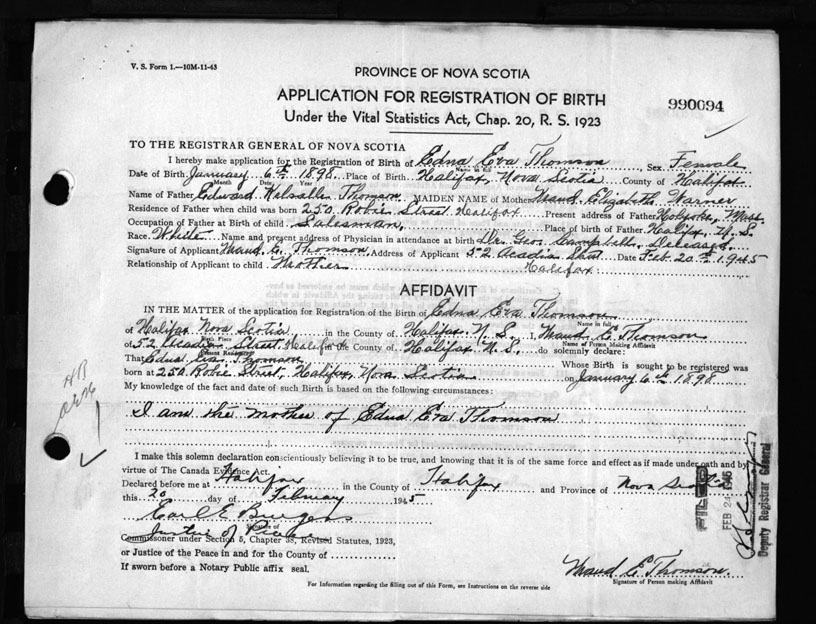 V. S. Form 1.—10M-11-43
PROVINCE OF NOVA SCOTIA
APPLICATION FOR REGISTRATION OF BIRTH
990094
Under the Vital Statistics Act, Chap. 20, R. S. 1923
TO THE REGISTRAR GENERAL OF NOVA SCOTIA
I hereby make application for the Registration of Birth of Edna Eva Thomson Sex Female
Name in full
Date of Birth January 6th 1898 Place of Birth Halifax, Nova Scotia County of Halifax
Month Date Year
Name of Father Edward Thomson MAIDEN NAME of Mother Maud Elizabeth Warner
Residence of Father when child was born 250 Robie Street Halifax Present address of Father Holyoke, Mass.
Occupation of Father at Birth of child Salesman Place of birth of Father Halifax, N. S.
Race White Name and present address of Physician in attendance at birth Dr. Geo. Campbell, Deceased
Signature of Applicant Maud E. Thomson Address of Applicant 52 Acadia Street Date Feb. 20th 1945
Relationship of Applicant to child Mother Halifax
AFFIDAVIT
IN THE MATTER of the application for Registration of the Birth of Edna Eva Thomson
Name in full
of Halifax Nova Scotia, in the County of Halifax N. S., I, Maud E. Thomson
Birth Place Name of Person Making Affidavit
of 52 Acadia Street Halifax the County of Halifax N. S., do solemnly declare:
Present Residence
That Edna Eva Thomson Whose Birth is sought to be registered was
born at 250 Robie Street, Halifax, Nova Scotia on January 6th 1898
My knowledge of the fact and date of such Birth is based on the following circumstances:
I am the mother of Edna Eva Thomson
I make this solemn declaration conscientiously believing it to be true, and knowing that it is of the same force and effect as if made under oath and by
virtue of The Canada Evidence Act.
Declared before me at Halifax in the County of Halifax and Province of Nova Scotia
this 20 day of February 1945
Earl E Burgess
Justice of Peace
Commissioner under Section 5, Chapter 38, Revised Statutes, 1923,
or Justice of the Peace in and for the County of
If sworn before a Notary Public affix seal.
Maud E. Thomson
Signature of Person making Affidavit
For Information regarding the filling out of this Form, see Instructions on the reverse side
FILED
FEB 24 1945
Deputy Registrar General